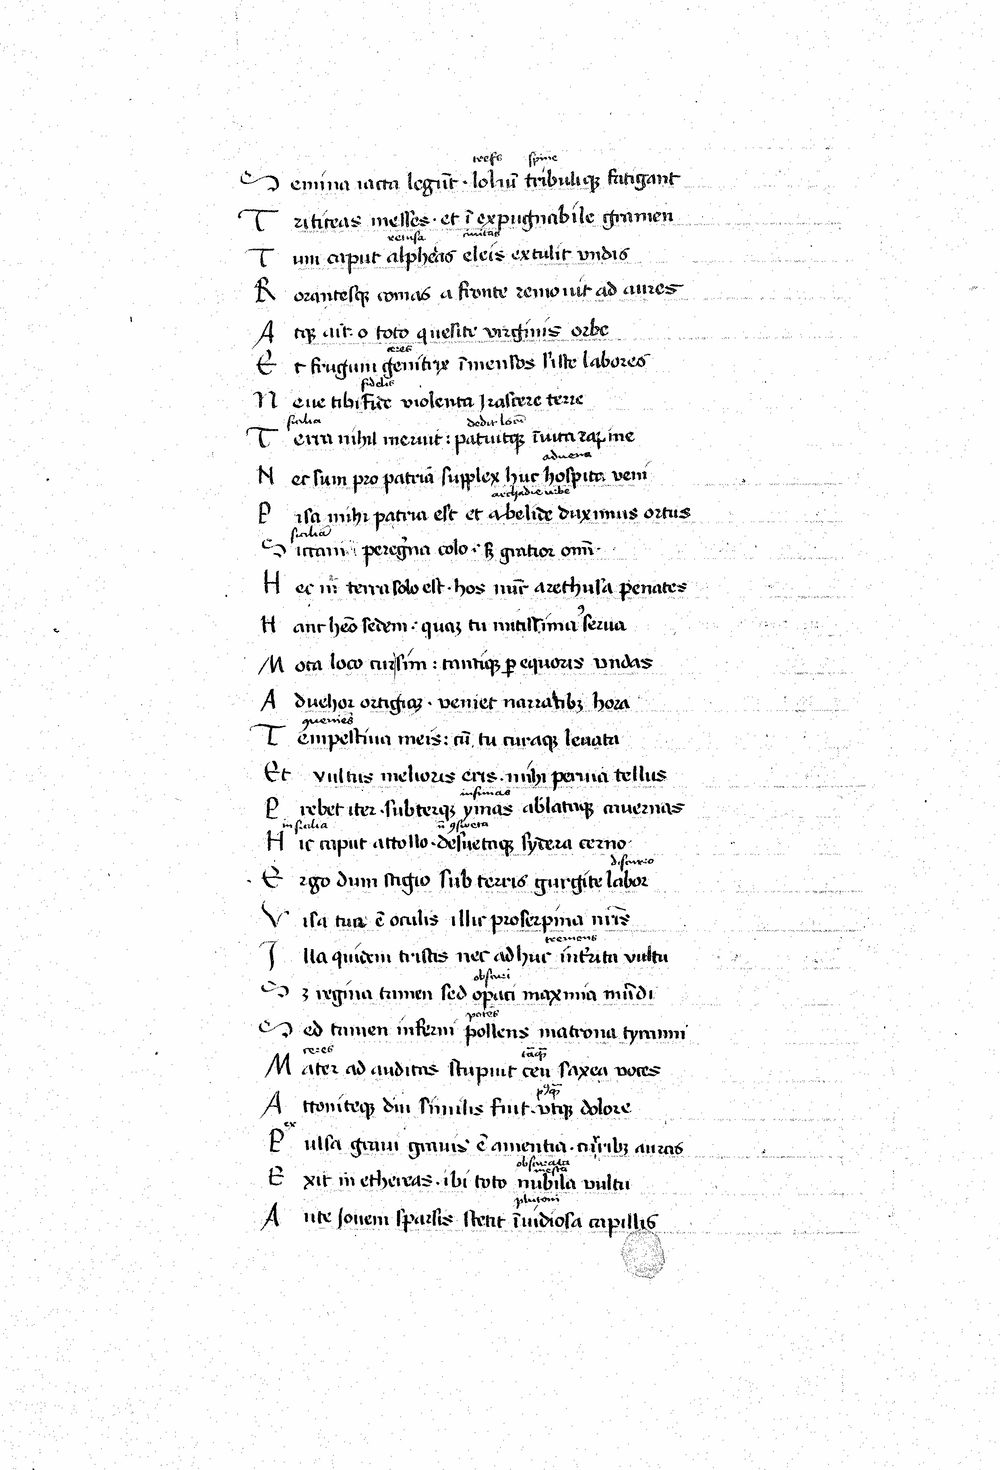 trefs spine
Semina iacta legūt · loliū tribuliqꝫ fatigant
Trititeas messes · et īexpugnabile gramen
retusa civitas
Tum caput alpheas eleis extulit vndis
Rorantesqꝫ comas a fronte remouit ad aures
Atqꝫ ait · o toto quesite virginis orbe
ceres
Et frugum genitrix īmensos siste labores
fidelis
Neue tibi fide violenta Jrascere terre
sicilia dedit locū
Terra nihil meruit : patuitqꝫ īuita rapine
aduena
Nec sum pro patriā supplex huc hospita veni
archadie vrbe
Pisa mihi patria est et ab elide duximus ortus
siciliā
Sicani peregͥna colo : sꝫ gratior omī ·
Hec m̄ terra solo est · hos nūc arethusa penates
Hanc heō sedem : quaꝫ tu mitissima serua
Mota loco cur sim : tantiqꝫ ꝑ equoris vndas
Aduehor ortigiaꝫ · veniet narratibꝫ hora
Tempestiua meis : cū tu curaqꝫ leuata
Et vultus melioris eris · mihi peruia tellus
infimas
Prebet iter · subterqꝫ ymas ablataqꝫ cauernas
in sicilia n̄ ꝯsueta
Hic caput attollo · desuetaqꝫ sydera cerno
discurro
Ergo dum stigio sub terris gurgite labor
Visa tua ē oculis illic proserpina nr̄is
tremens
Jlla quidem tristis nec adhuc int̄rita vultu
obscuri
Sꝫ regina tamen sed opaci maxima mūdi
potēs
Sed tamen inferni pollens matrona tyranni
ceres
Mater ad auditas stupuit ceu saxea voces
Attoniteqꝫ diu similis fuit · vtqꝫ dolore
ex
Pulsa graui grauis ē amentia · curribꝫ auras
obscurata
mesta
Exit in ethereas · ibi toto nubila vultu
plutoni
Ante Jouem sparsis stetit īuidiosa capillis